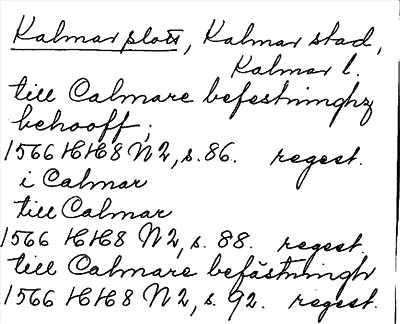 Kalmar slott, Kalmar stad,
Kalmar l.
till Calmare befestninghz
behooff;
1566 HH8 N2, s. 86. regest.
i Calmar
till Calmar
1566 HH8 N2, s. 88. regest.
till Calmare befästningh
1566 HH8 N2, s. 92. regest.